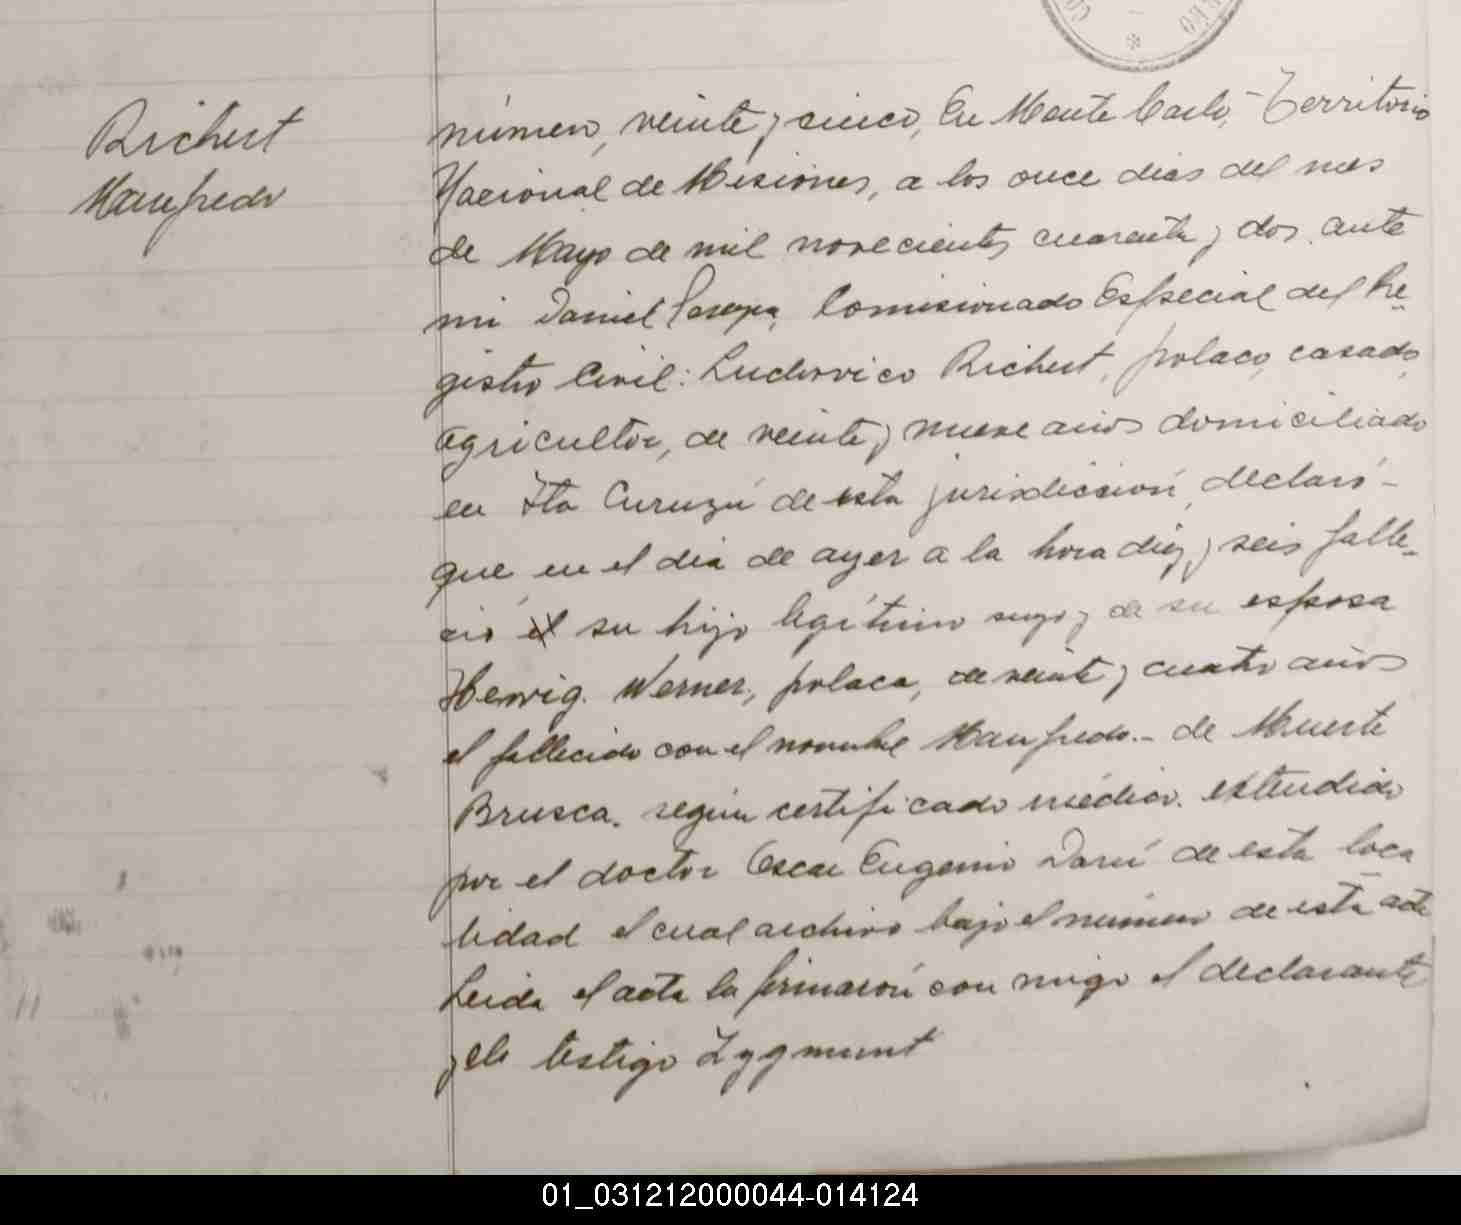 Richert
Manfredo
número, veinte y cinco, En Monte Carlo, Territorio
Nacional de Misiones, a los once dias del mes
de Mayo de mil novecientos cuarenta y dos. ante
mi Daniel Comisionado Especial del Re-
gistro Civil: Ludovico Richert, polaco, casado,
agricultor, de veinte y nueve años domiciliado
en Ita Curuzú de esta jurisdicción, declaró -
que en el dia de ayer a la hora diez y seis falle-
ció el su hijo legítimo suyo y de su esposa
Hewig. Werner, polaca, de veinte y cuatro años
el fallecido con el nombre Manfredo.- de Muerte
Brusca. según certificado médico. extendido
por el doctor Oscar Eugenio Darú de esta loca
lidad el cual archivo bajo el número de esta acta
Leida el acta la firmarón con migo el declarante
y els testigo Zygmunt
01_031212000044-014124